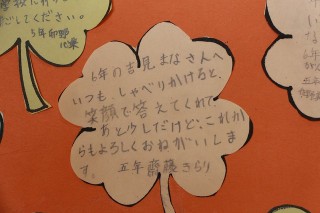 だしてください。
5年
6年の吉見まなさんへ
いつも、しゃべりかけると、
笑顔で答えてくれて
あと少しだけど、これか
らもよろしくおねがいしま
す。 五年 齋藤きらり